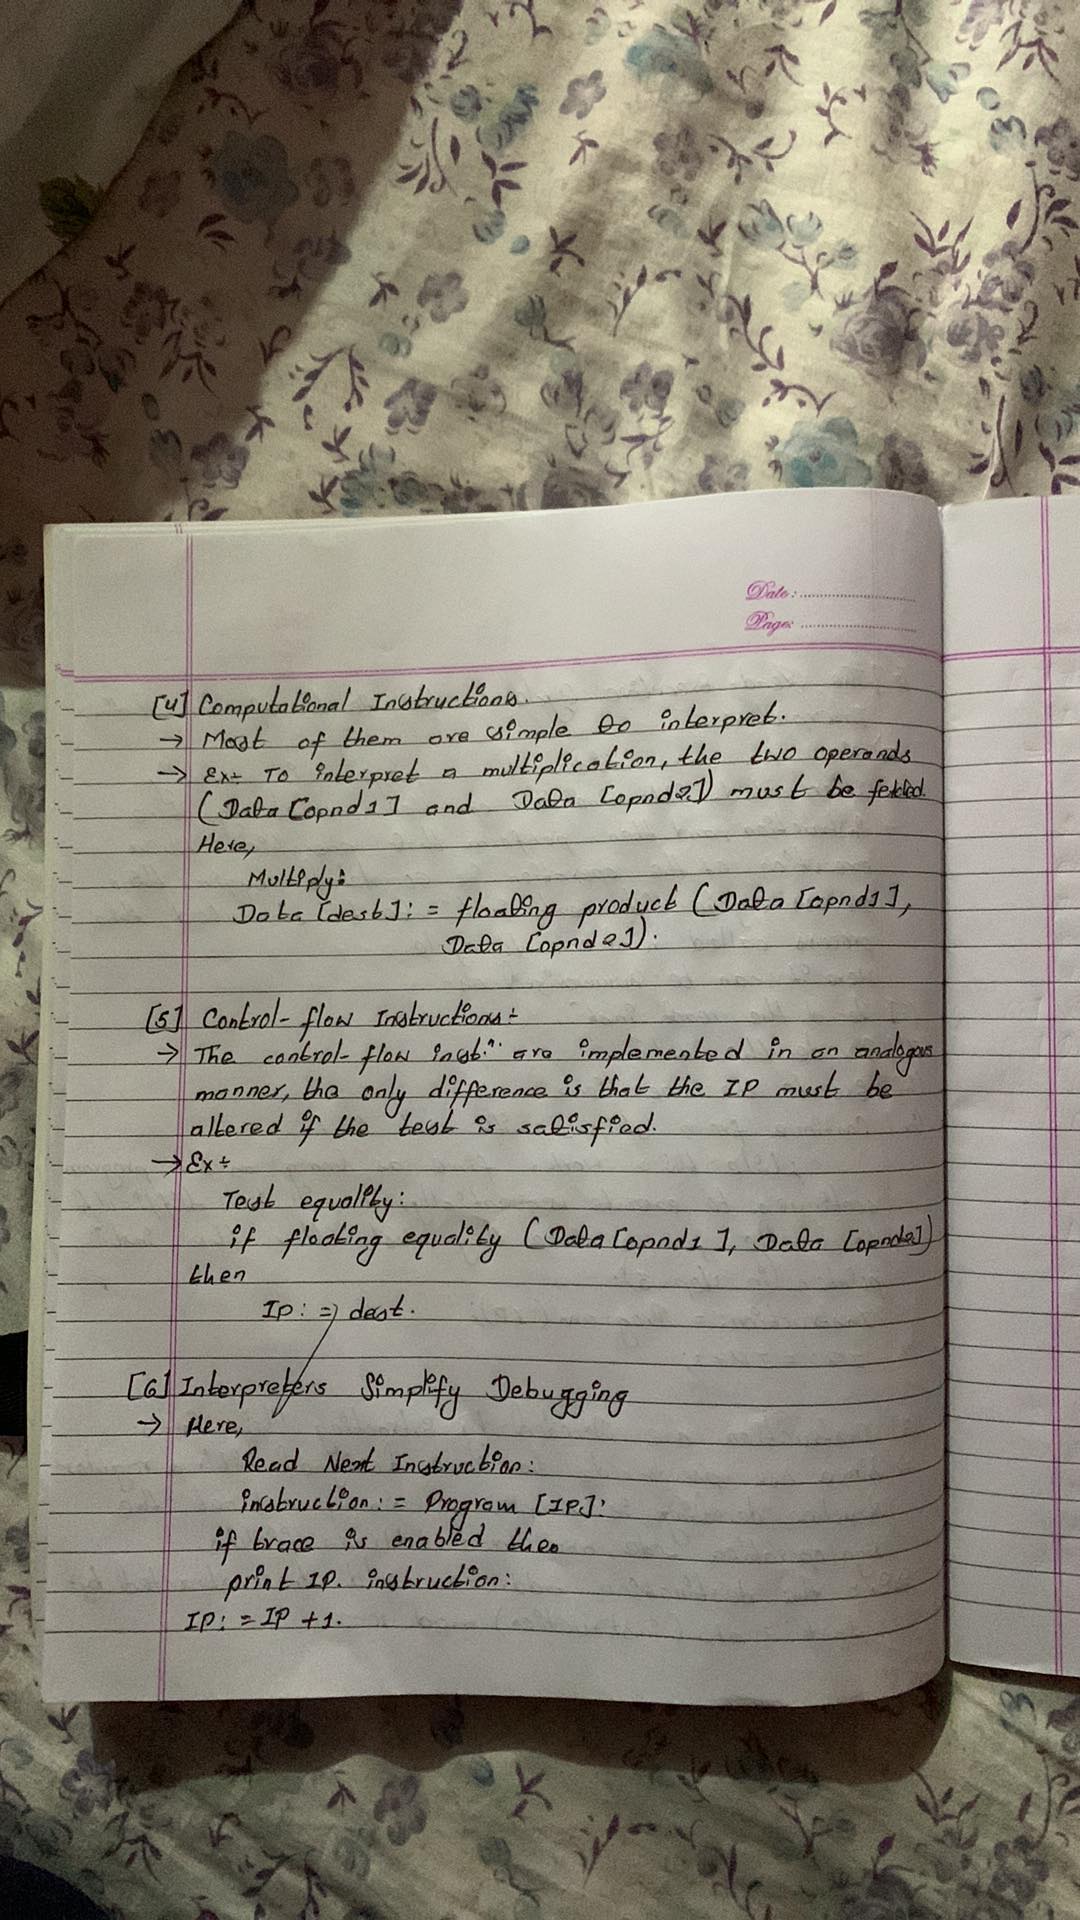 Date:
Page:
[4] Computational Instructions.
→ Most of them are simple to interpret.
→ Ex÷ To interpret a multiplication, the two operands
(Data [opnd1] and Data [opnd2]) must be fetched.
Here,
Multiply:
Data [dest]: = floating product (Data [opnd1],
Data [opnd2]).
[5] Control-flow Instructions÷
→ The control-flow instⁿ. are implemented in an analogous
manner, the only difference is that the IP must be
altered if the test is satisfied.
→ Ex÷
Test equality:
if floating equality (Data [opnd1], Data [opnd2])
then
IP: => dest.
[6] Interpreters Simplify Debugging
→ Here,
Read Next Instruction:
instruction: = Program [IP];
if trace is enabled then
print IP. instruction:
IP: = IP +1.